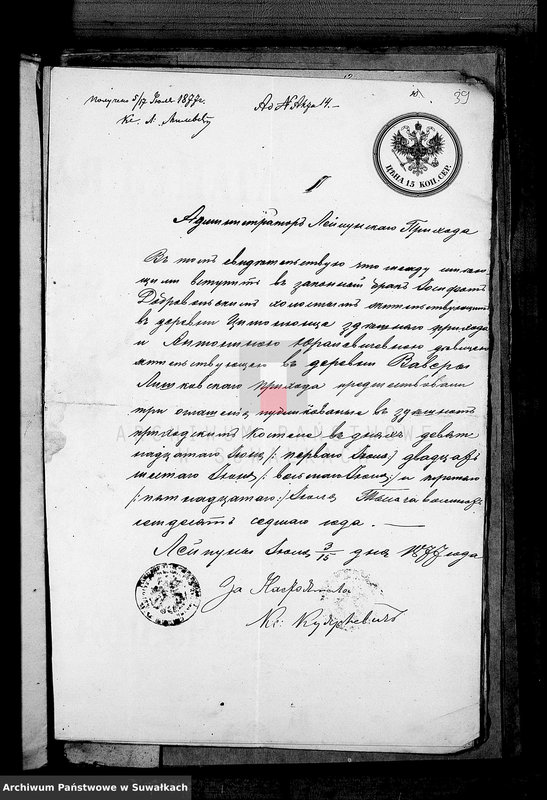 Получено 5/17 Іюля 1877 г.
Ad N Akta 14. –
39
Кс. А.
ЦѢНА 15 КОП. СЕР.
Администраторъ Лейпунскаго Прихода
Въ томъ свидѣтельствую что между имѣю-
щими вступить въ законный бракъ
Добровольскимъ холостымъ жительствующимъ
въ деревни здѣшняго прихода
и Антониною дѣвицею
жительствующею въ деревни
прихода предшествовали
три оглашенія публикованыя въ здѣшнемъ
приходскимъ костеле въ дняхъ девят-
надцатаго Іюня /: перваго Іюля :/ двадцать
шестаго Іюня /: восьмаго Іюля :/ и третьяго
/: пятнадцатаго :/ Іюля Тысяча восемсотъ
семдесятъ седмаго года. —
Лейпуны Іюля 3/15 дня 1877 года
За Настоятеля
Кс.
ARCHIWUM PAŃSTWOWE
Archiwum Państwowe w Suwałkach